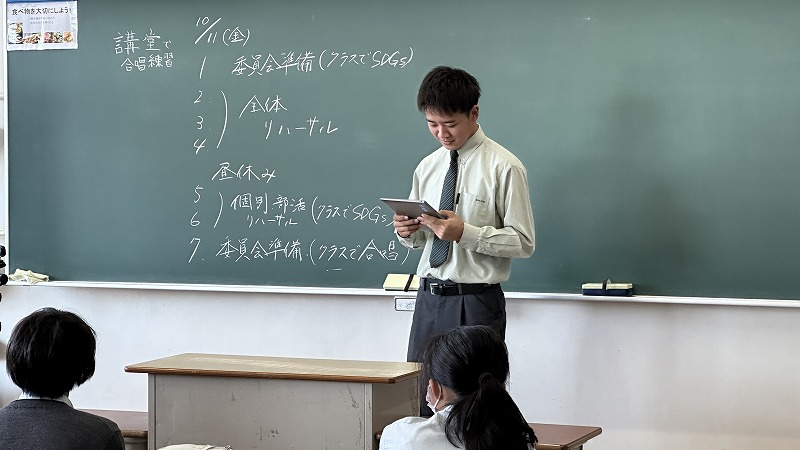 食べ物を大切にしよう!
講堂で
合唱練習
10/11(金)
1 委員会準備(クラスでSDGs)
2.
3.
4
全体
リハーサル
昼休み
5
6
個別部活(クラスでSDGs)
リハーサル
7. 委員会準備.(クラスで合唱)